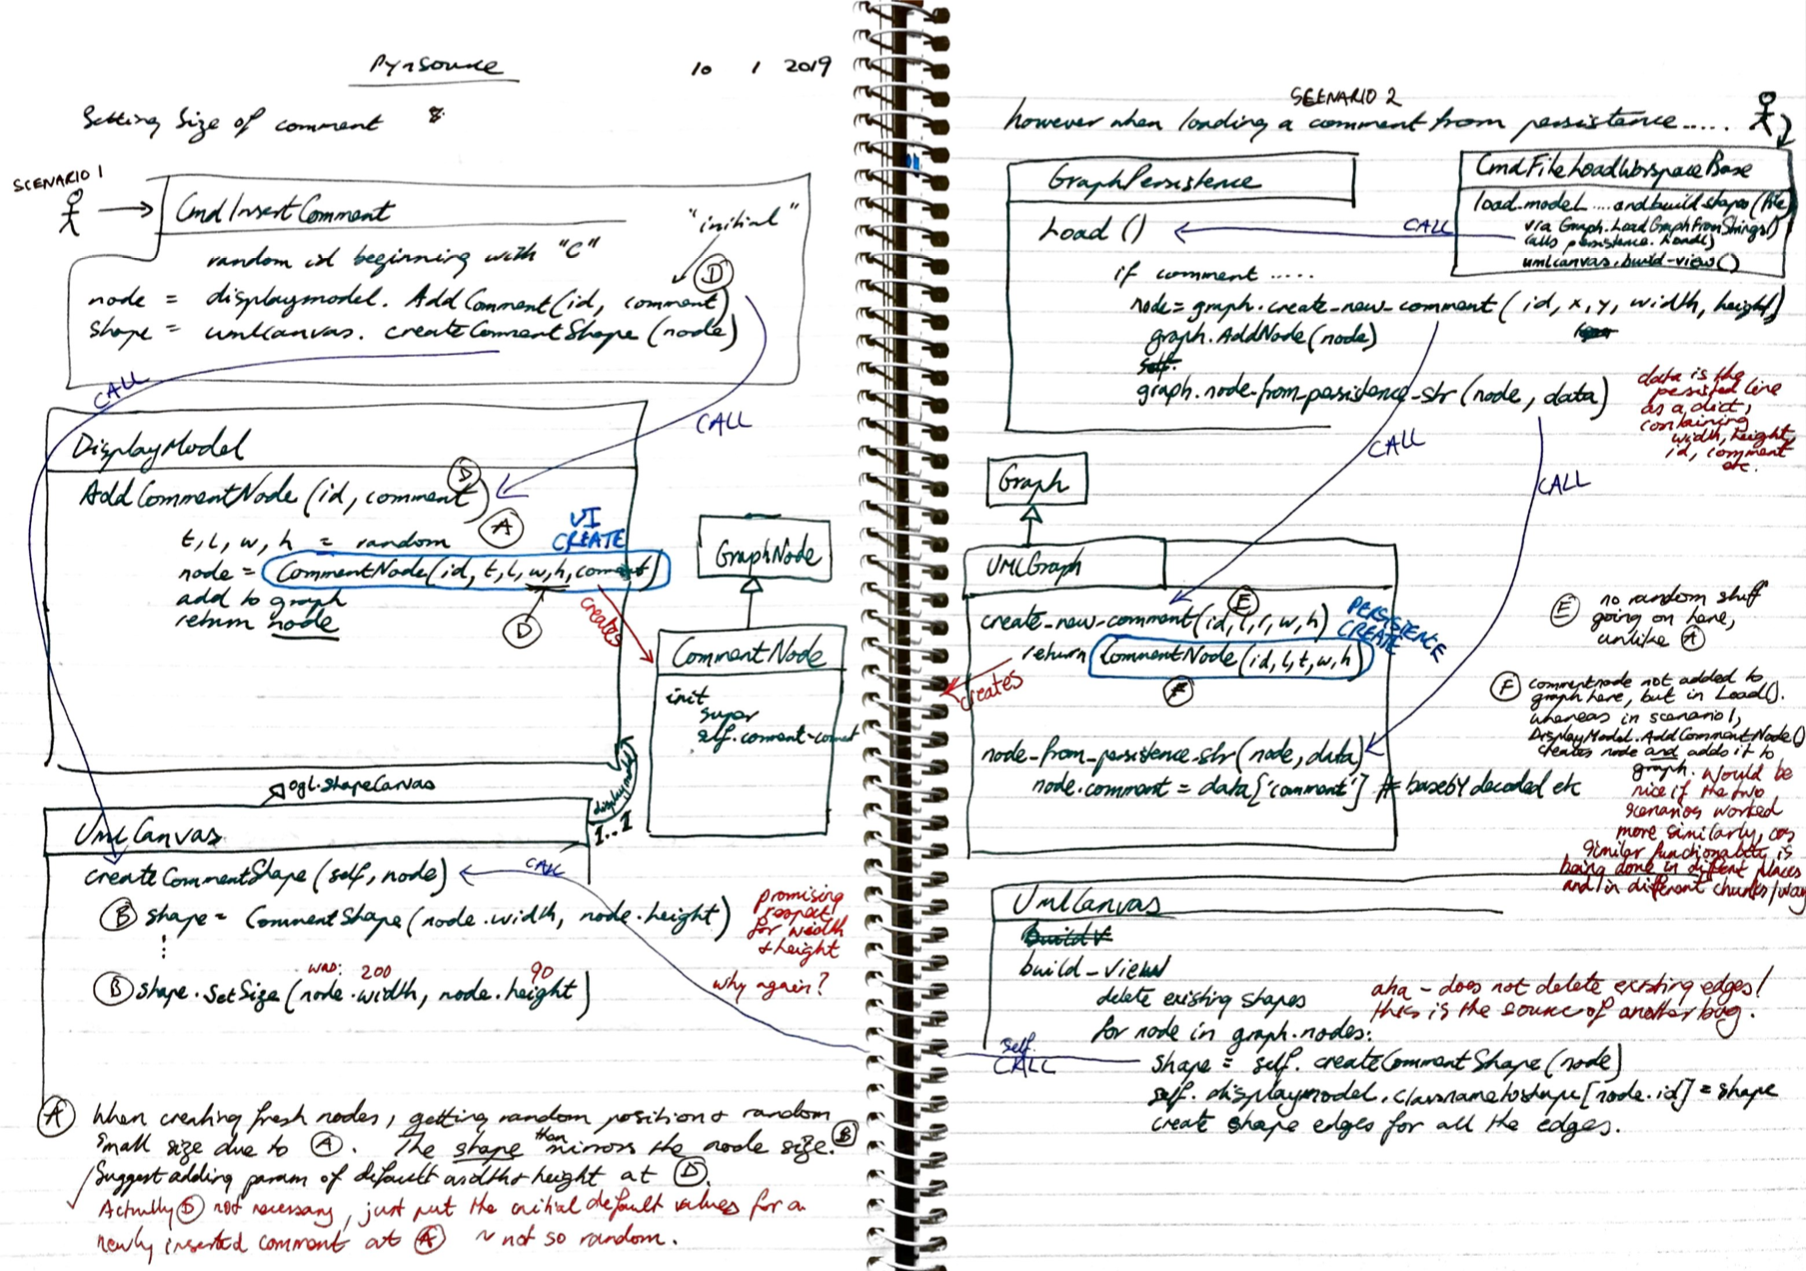 PyNSource 10 1 2019
Setting Size of comment :
SCENARIO 1
CmdInsertComment
"initial"
random id beginning with "C"
D
node = displaymodel. AddComment(id, comment)
shape = umlcanvas. createCommentShape (node)
CALL
CALL
DisplayModel
D
AddCommentNode (id, comment)
A
t, l, w, h = random
UI
CREATE
node = CommentNode(id, t, l, w, h, comment)
add to graph
return node
D
creates
GraphNode
CommentNode
init
super
self.comment=comment
displaymodel
1..1
ogl.ShapeCanvas
UmlCanvas
createCommentShape (self, node)
CALL
B shape = CommentShape (node.width, node.height)
promising
respect
for width
+ height
was: 200 90
B shape.SetSize (node.width, node.height)
why again?
A When creating fresh nodes, getting random position + random
small size due to A. The shape then mirrors the node size. B
Suggest adding param of default width + height at D.
✓ Actually D not necessary, just put the initial default values for a
newly inserted comment at A ~ not so random.
SCENARIO 2
however when loading a comment from persistence.....
GraphPersistence
Load ()
if comment .....
node = graph.create_new_comment (id, x, y, width, height)
graph.AddNode (node)
self.
graph.node_from_persistence_str (node, data)
CmdFileLoadWorspaceBase
load.model ....andbuild.shapes (file)
via Graph.LoadGraphFromStrings()
calls persistence.Load()
umlcanvas.build-view()
CALL
data is the
persisted line
as a dict,
containing
width, height,
id, comment
etc.
CALL
CALL
Graph
UMLGraph
E
create_new_comment(id, l, r, w, h)
PERSISTENCE
CREATE
return CommentNode (id, l, t, w, h)
F
creates
node_from_persistence_str (node, data)
node.comment = data['comment'] # base64 decoded etc
E no random stuff
going on here,
unlike A
F commentnode not added to
graph here, but in Load().
whereas in scenario 1,
DisplayModel.AddCommentNode()
creates node and adds it to
graph. Would be
nice if the two
scenarios worked
more similarly, cos
similar functionality is
being done in different places
and in different chunks/way
UmlCanvas
buildv
build_view
delete existing shapes
aha - does not delete existing edges!
this is the source of another bug.
for node in graph.nodes:
self.
CALL
shape = self. createCommentShape (node)
self.displaymodel.classnametoshape[node.id] = shape
create shape edges for all the edges.